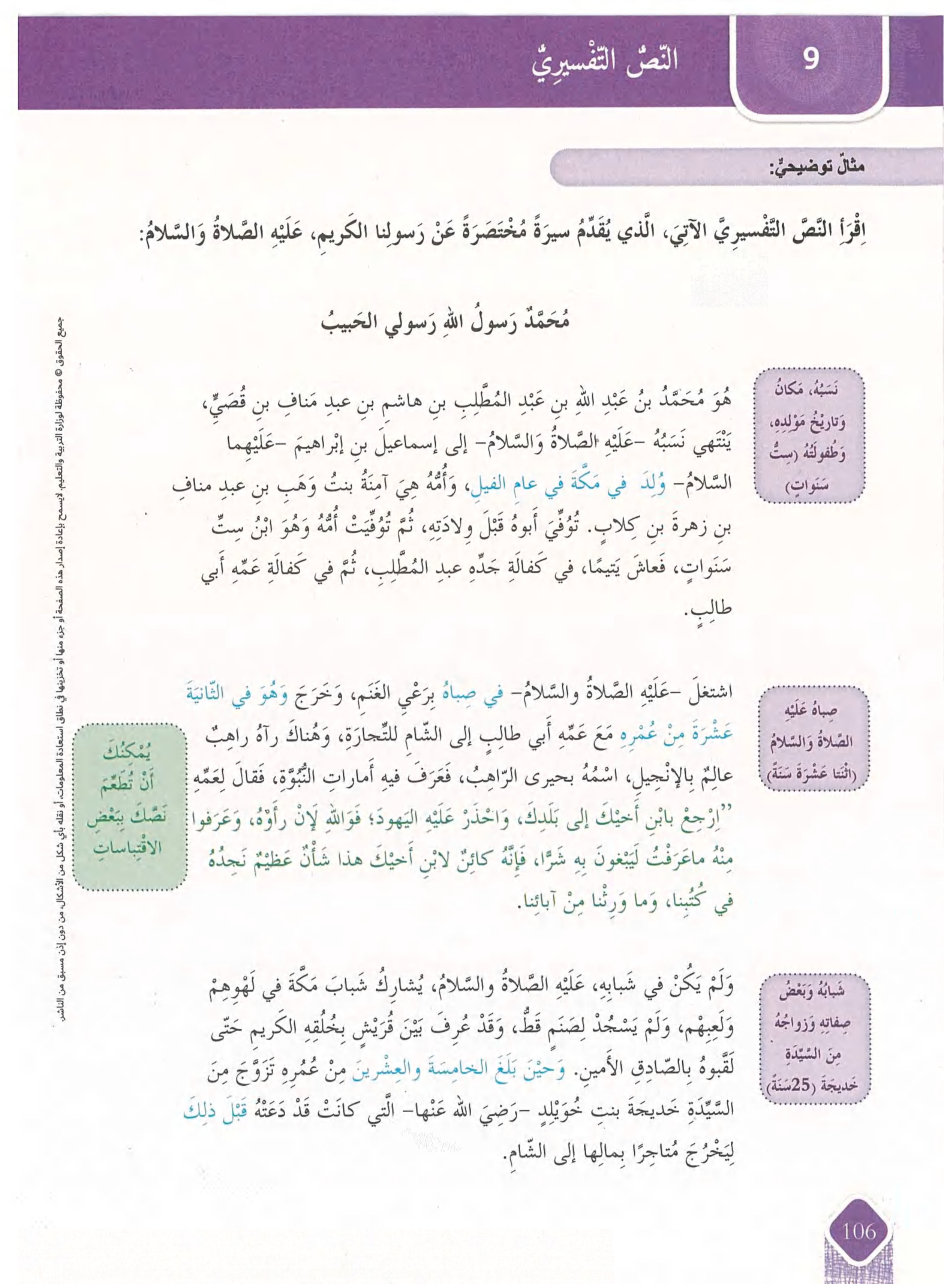 9
النّصُّ التّفْسيرِيُّ
مثالٌ توضيحيٌّ:
اِقْرَأِ النَّصَّ التَّفْسيرِيَّ الآتِيَ، الَّذي يُقَدِّمُ سيرَةً مُخْتَصَرَةً عَنْ رَسولِنا الكَريمِ، عَلَيْهِ الصَّلاةُ وَالسَّلامُ:
مُحَمَّدٌ رَسولُ اللهِ رَسولي الحَبيبُ
نَسَبُهُ، مَكانُ
وَتاريْخُ مَوْلِدِهِ،
وَطُفولَتُهُ (سِتُّ
سَنَواتٍ)
هُوَ مُحَمَّدُ بنُ عَبْدِ اللهِ بن عَبْدِ المُطَّلِبِ بن هاشمِ بن عبدِ مَنافِ بن قُصَيٍّ،
يَنْتَهي نَسَبُهُ –عَلَيْهِ الصَّلاةُ وَالسَّلامُ– إلى إسماعيلَ بن إبْراهيمَ –عَلَيْهِما
السَّلامُ– وُلِدَ في مَكَّةَ في عامِ الفيلِ، وَأُمُّهُ هِيَ آمِنَةُ بنتُ وَهَبِ بن عبدِ منافِ
بنِ زهرةَ بن كِلابٍ. تُوُفِّيَ أَبوهُ قَبْلَ وِلادَتِهِ، ثُمَّ تُوُفِّيَتْ أُمُّهُ وَهُوَ ابْنُ سِتِّ
سَنَواتٍ، فَعاشَ يَتيمًا، في كَفالَةِ جَدِّه عبدِ المُطَّلِبِ، ثُمَّ في كَفالَةِ عَمِّهِ أَبي
طالِبٍ.
صِباهُ عَلَيْهِ
الصَّلاةُ وَالسَّلامُ
(اثْنَتا عَشْرَةَ سَنَةً)
اشتغلَ –عَلَيْهِ الصَّلاةُ والسَّلامُ– في صِباهُ بِرَعْيِ الغَنَمِ، وَخَرَجَ وَهُوَ في الثّانيَةَ
عَشْرَةَ مِنْ عُمْرِهِ مَعَ عَمِّهِ أَبي طالِبٍ إلى الشّامِ للتِّجارَةِ، وَهُناكَ رَآهُ راهِبٌ
عالِمٌ بِالإنْجيلِ، اسْمُهُ بحيرى الرّاهِبُ، فَعَرَفَ فيهِ أَماراتِ النُّبُوَّةِ، فَقالَ لِعَمِّهِ
"اِرْجِعْ بابْنِ أَخيْكَ إلى بَلَدِكَ، وَاحْذَرْ عَلَيْهِ اليَهودَ؛ فَوَاللهِ لَإنْ رأَوْهُ، وَعَرَفوا
مِنْهُ ماعَرَفْتُ لَيَبْغونَ بِهِ شَرًّا، فَإنَّهُ كائِنٌ لابْنِ أَخيْكَ هذا شَأْنٌ عَظيْمٌ نَجِدُهُ
في كُتُبِنا، وَما وَرِثْنا مِنْ آبائِنا.
يُمْكِنُكَ
أَنْ تُطَعِّمَ
نَصَّكَ بِبَعْضِ
الاقْتِباساتِ
شَبابُهُ وَبَعْضُ
صِفاتِهِ وَزواجُهُ
مِنَ السَّيِّدَةِ
خَديجَة (25سَنَةً)
وَلَمْ يَكُنْ في شَبابِهِ، عَلَيْهِ الصَّلاةُ والسَّلامُ، يُشارِكُ شَبابَ مَكَّةَ في لَهْوِهِمْ
وَلَعِبِهْم، وَلَمْ يَسْجُدْ لِصَنَمٍ قَطُّ، وَقَدْ عُرِفَ بَيْنَ قُرَيْشٍ بِخُلُقِهِ الكَريمِ حَتّى
لَقَّبوهُ بِالصّادِقِ الأَمينِ. وَحيْنَ بَلَغَ الخامِسَةَ والعِشْرينَ مِنْ عُمُرِهِ تَزَوَّجَ مِنَ
السَّيِّدَةِ خَديجَةَ بنتِ خُوَيْلِدٍ –رَضِيَ الله عَنْها– الَّتي كانَتْ قَدْ دَعَتْهُ قَبْلَ ذلِكَ
لِيَخْرُجَ مُتاجِرًا بِمالِها إلى الشّامِ.
جميع الحقوق © محفوظة لوزارة التربية والتعليم. لايسمح بإعادة إصدار هذه الصفحة أو جزء منها أو تخزينها في نطاق استعادة المعلومات، أو نقله بأي شكل من الأشكال، من دون إذن مسبق من الناشر
106